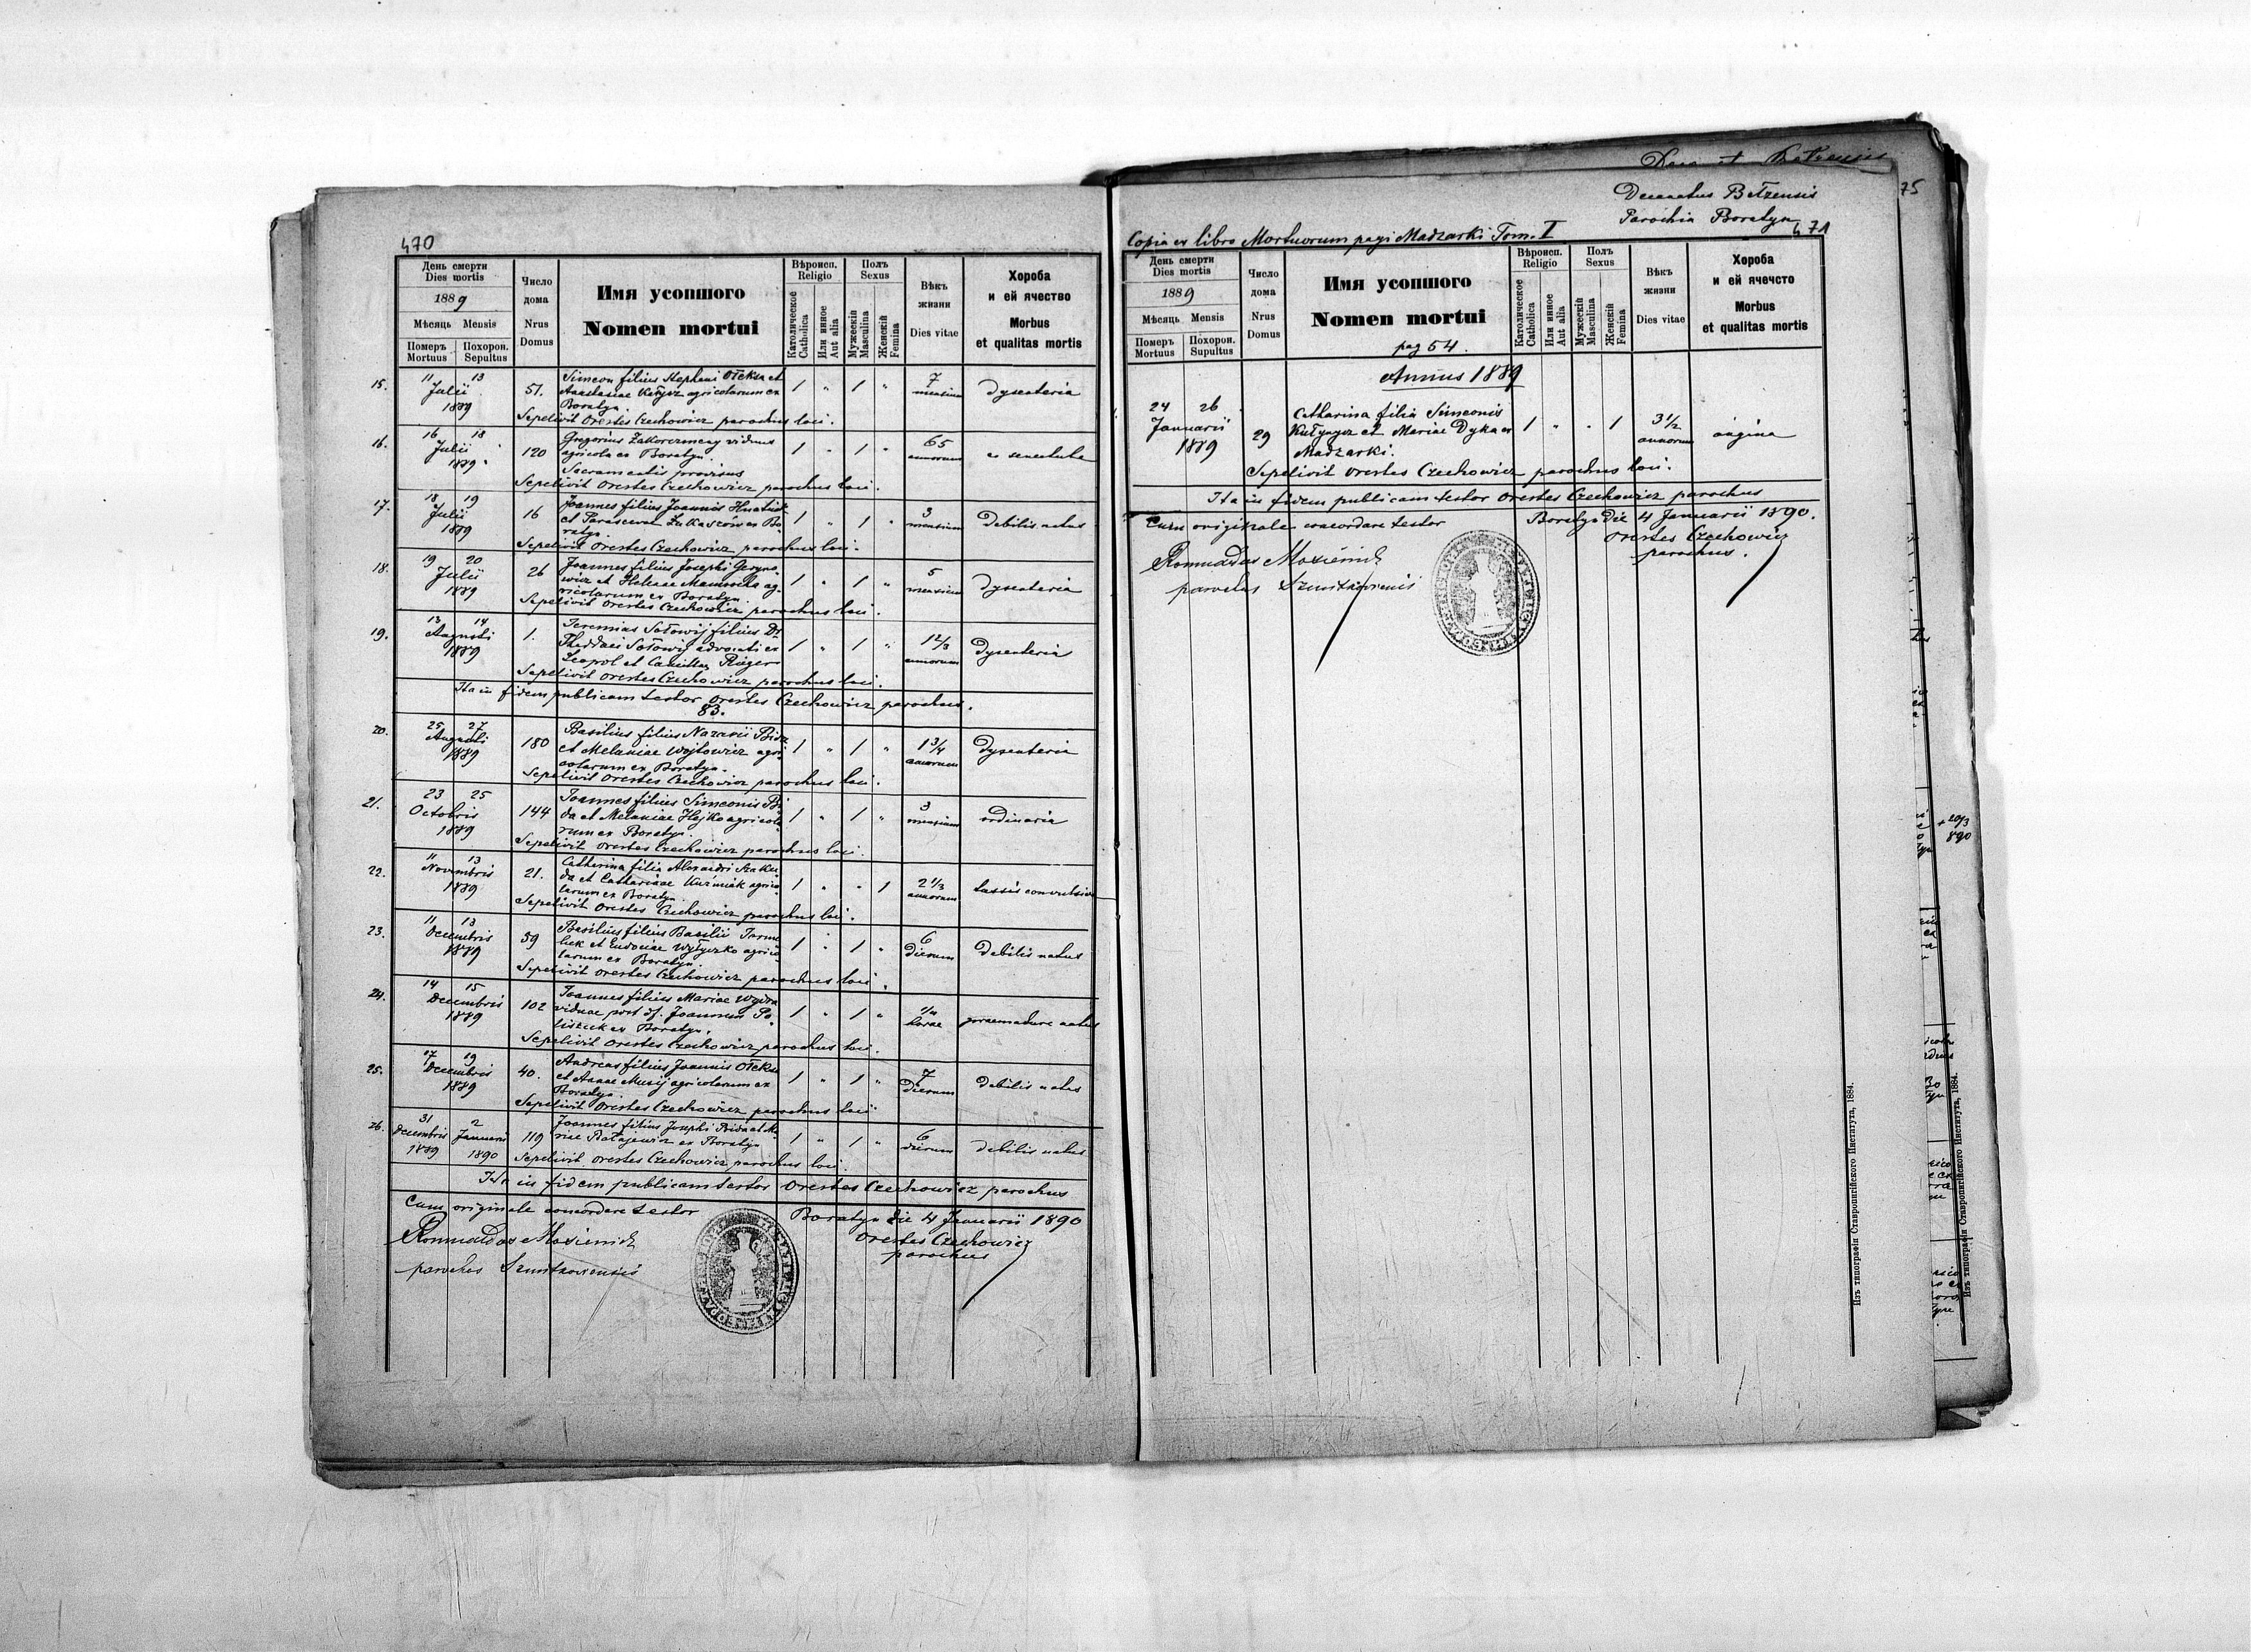 470
День смерти
Dies mortis
1889
Мѣсяць Mensis
Померъ Mortuus
Похорон. Sepultus
Число дома
Nrus Domus
Имя усопшого
Nomen mortui
Вѣроисп.
Religio
Католическое Catholica
Или инное Aut alia
Полъ
Sexus
Мужескій Masculina
Женскій Femina
Вѣкъ жизни
Dies vitae
Хороба
и ей ячество
Morbus
et qualitas mortis
15. 11 13 Julii 1889 51. Simeon filius Stephani Ołeksa et
Anastasiae agricolarum ex
Boratyn. 1 " 1 " 7 mensium dysenteria
Sepelivit Orestes Czechowicz parochus loci.
16. 16 18 Julii 1889 120 Gregorius viduus
agricola ex Boratyn. 1 " 1 " 65 annorum ex senectute
Sacramentis provisus
Sepelivit Orestes Czechowicz parochus loci.
17. 18 19 Julii 1889 16 Joannes filius Joannis
et ex Bo-
ratyn. 1 " 1 " 3 mensium Debilis natus
Sepelivit Orestes Czechowicz parochus loci.
18. 19 20 Julii 1889 26 Joannes filius Josephi
et Helenae ag-
ricolarum ex Boratyn. 1 " 1 " 5 mensium Dysenteria
Sepelivit Orestes Czechowicz parochus loci.
19. 13 14 Augusti 1889 1. Jeremias Sołowij filius Dr
Thaddaei Sołowij advocati ex
Leopol et 1 " 1 " 1 2/3 annorum Dysenteria
Sepelivit Orestes Czechowicz parochus loci.
Ita in fidem publicam testor Orestes Czechowicz parochus.
83.
20. 25 27 Augusti 1889 180 Basilius filius Nazarii
et Melaniae Wojtowicz agri-
colarum ex Boratyn. 1 " 1 " 1 3/4 annorum Dysenteria
Sepelivit Orestes Czechowicz parochus loci.
21. 23 25 Octobris 1889 144 Joannes filius Simeonis Bi-
da et Melaniae Hojko agricola-
rum ex Boratyn. 1 " 1 " 3 mensium ordinaria
Sepelivit Orestes Czechowicz parochus loci.
22. 11 13 Novembris 1889 21. Catharina filia Alexandri
et Catharinae Kuźmiak agrico-
larum ex Boratyn. 1 " " 1 2 1/3 annorum tussis convulsiva
Sepelivit Orestes Czechowicz parochus loci.
23. 11 13 Decembris 1889 59 Basilius filius Basilii
et Eudociae agrico-
larum ex Boratyn. 1 " 1 " 6 dierum Debilis natus
Sepelivit Orestes Czechowicz parochus loci.
24. 14 15 Decembris 1889 102 Joannes filius Mariae
viduae post df. Joannem
ex Boratyn. 1 " 1 " 1/4 horae praemature natus
Sepelivit Orestes Czechowicz parochus loci.
25. 17 19 Decembris 1889 40. Andreas filius Joannis Ołeksa
et Annae agricolarum ex
Boratyn. 1 " 1 " 7 Dierum Debilis natus
Sepelivit Orestes Czechowicz parochus loci
26. 31 Decembris 1889 2 Januarii 1890 119 Joannes filius Josephi Bida et Ma-
riae ex Boratyn 1 " 1 " 6 dierum debilis natus
Sepelivit Orestes Czechowicz parochus loci.
Ita in fidem publicam testor Orestes Czechowicz parochus
Cum originale concordare testor
Boratyn die 4 Januarii 1890
Orestes Czechowicz
parochus
parochus
Decanatus Bełzensis
Parochia Boratyn
75
471
Copia ex libro Mortuorum pagi Madzarki Tom. I
День смерти
Dies mortis
1889
Мѣсяць Mensis
Померъ Mortuus
Похорон. Supultus
Число дома
Nrus Domus
Имя усопшого
Nomen mortui
pag 54.
Вѣроисп.
Religio
Католическое Catholica
Или инное Aut alia
Полъ
Sexus
Мужескій Masculina
Женскій Femina
Вѣкъ жизни
Dies vitae
Хороба
и ей ячечсто
Morbus
et qualitas mortis
Annus 1889
24 26 Januarii 1889 29 Catharina filia Simeonis
et Mariae Dyka ex
Madzarki. 1 " " 1 3 1/2 annorum angina
Sepelivit Orestes Czechowicz parochus loci.
Ita in fidem publicam testor Orestes Czechowicz parochus
Cum originale concordare testor
Boratyn die 4 Januarii 1890.
Orestes Czechowicz
parochus.
parochus
Изъ типографіи Ставропигійского Института, 1884.
Изъ типографіи Ставропигійского Института, 1884.
+ 20/3
890